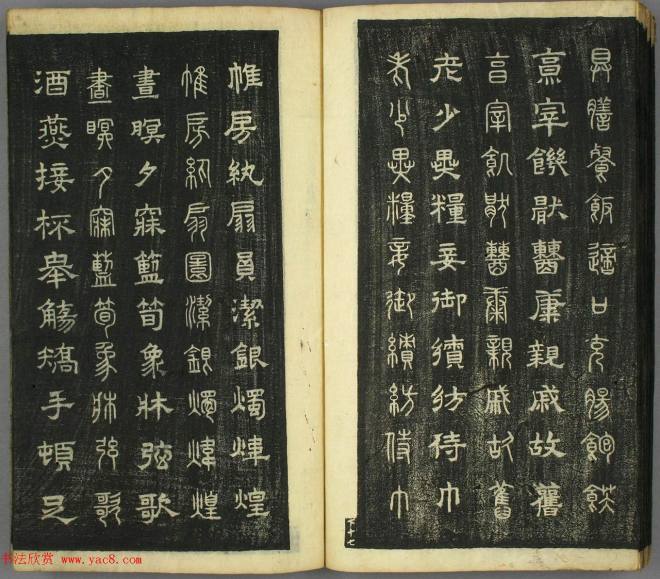 具膳餐飯適口充腸飽飫
亯宰饑猒糟康親戚故舊
亯宰飢猒糟康親戚故舊
老少異糧妾御績紡侍巾
老少異糧妾御績紡侍巾
下十七
帷房紈扇員潔銀燭煒煌
帷房紈扇圓潔銀燭煒煌
晝瞑夕寐籃筍象牀弦歌
晝瞑夕寐藍筍象牀弦歌
酒燕接杯舉觴矯手頓足
书法欣赏 www.yac8.com